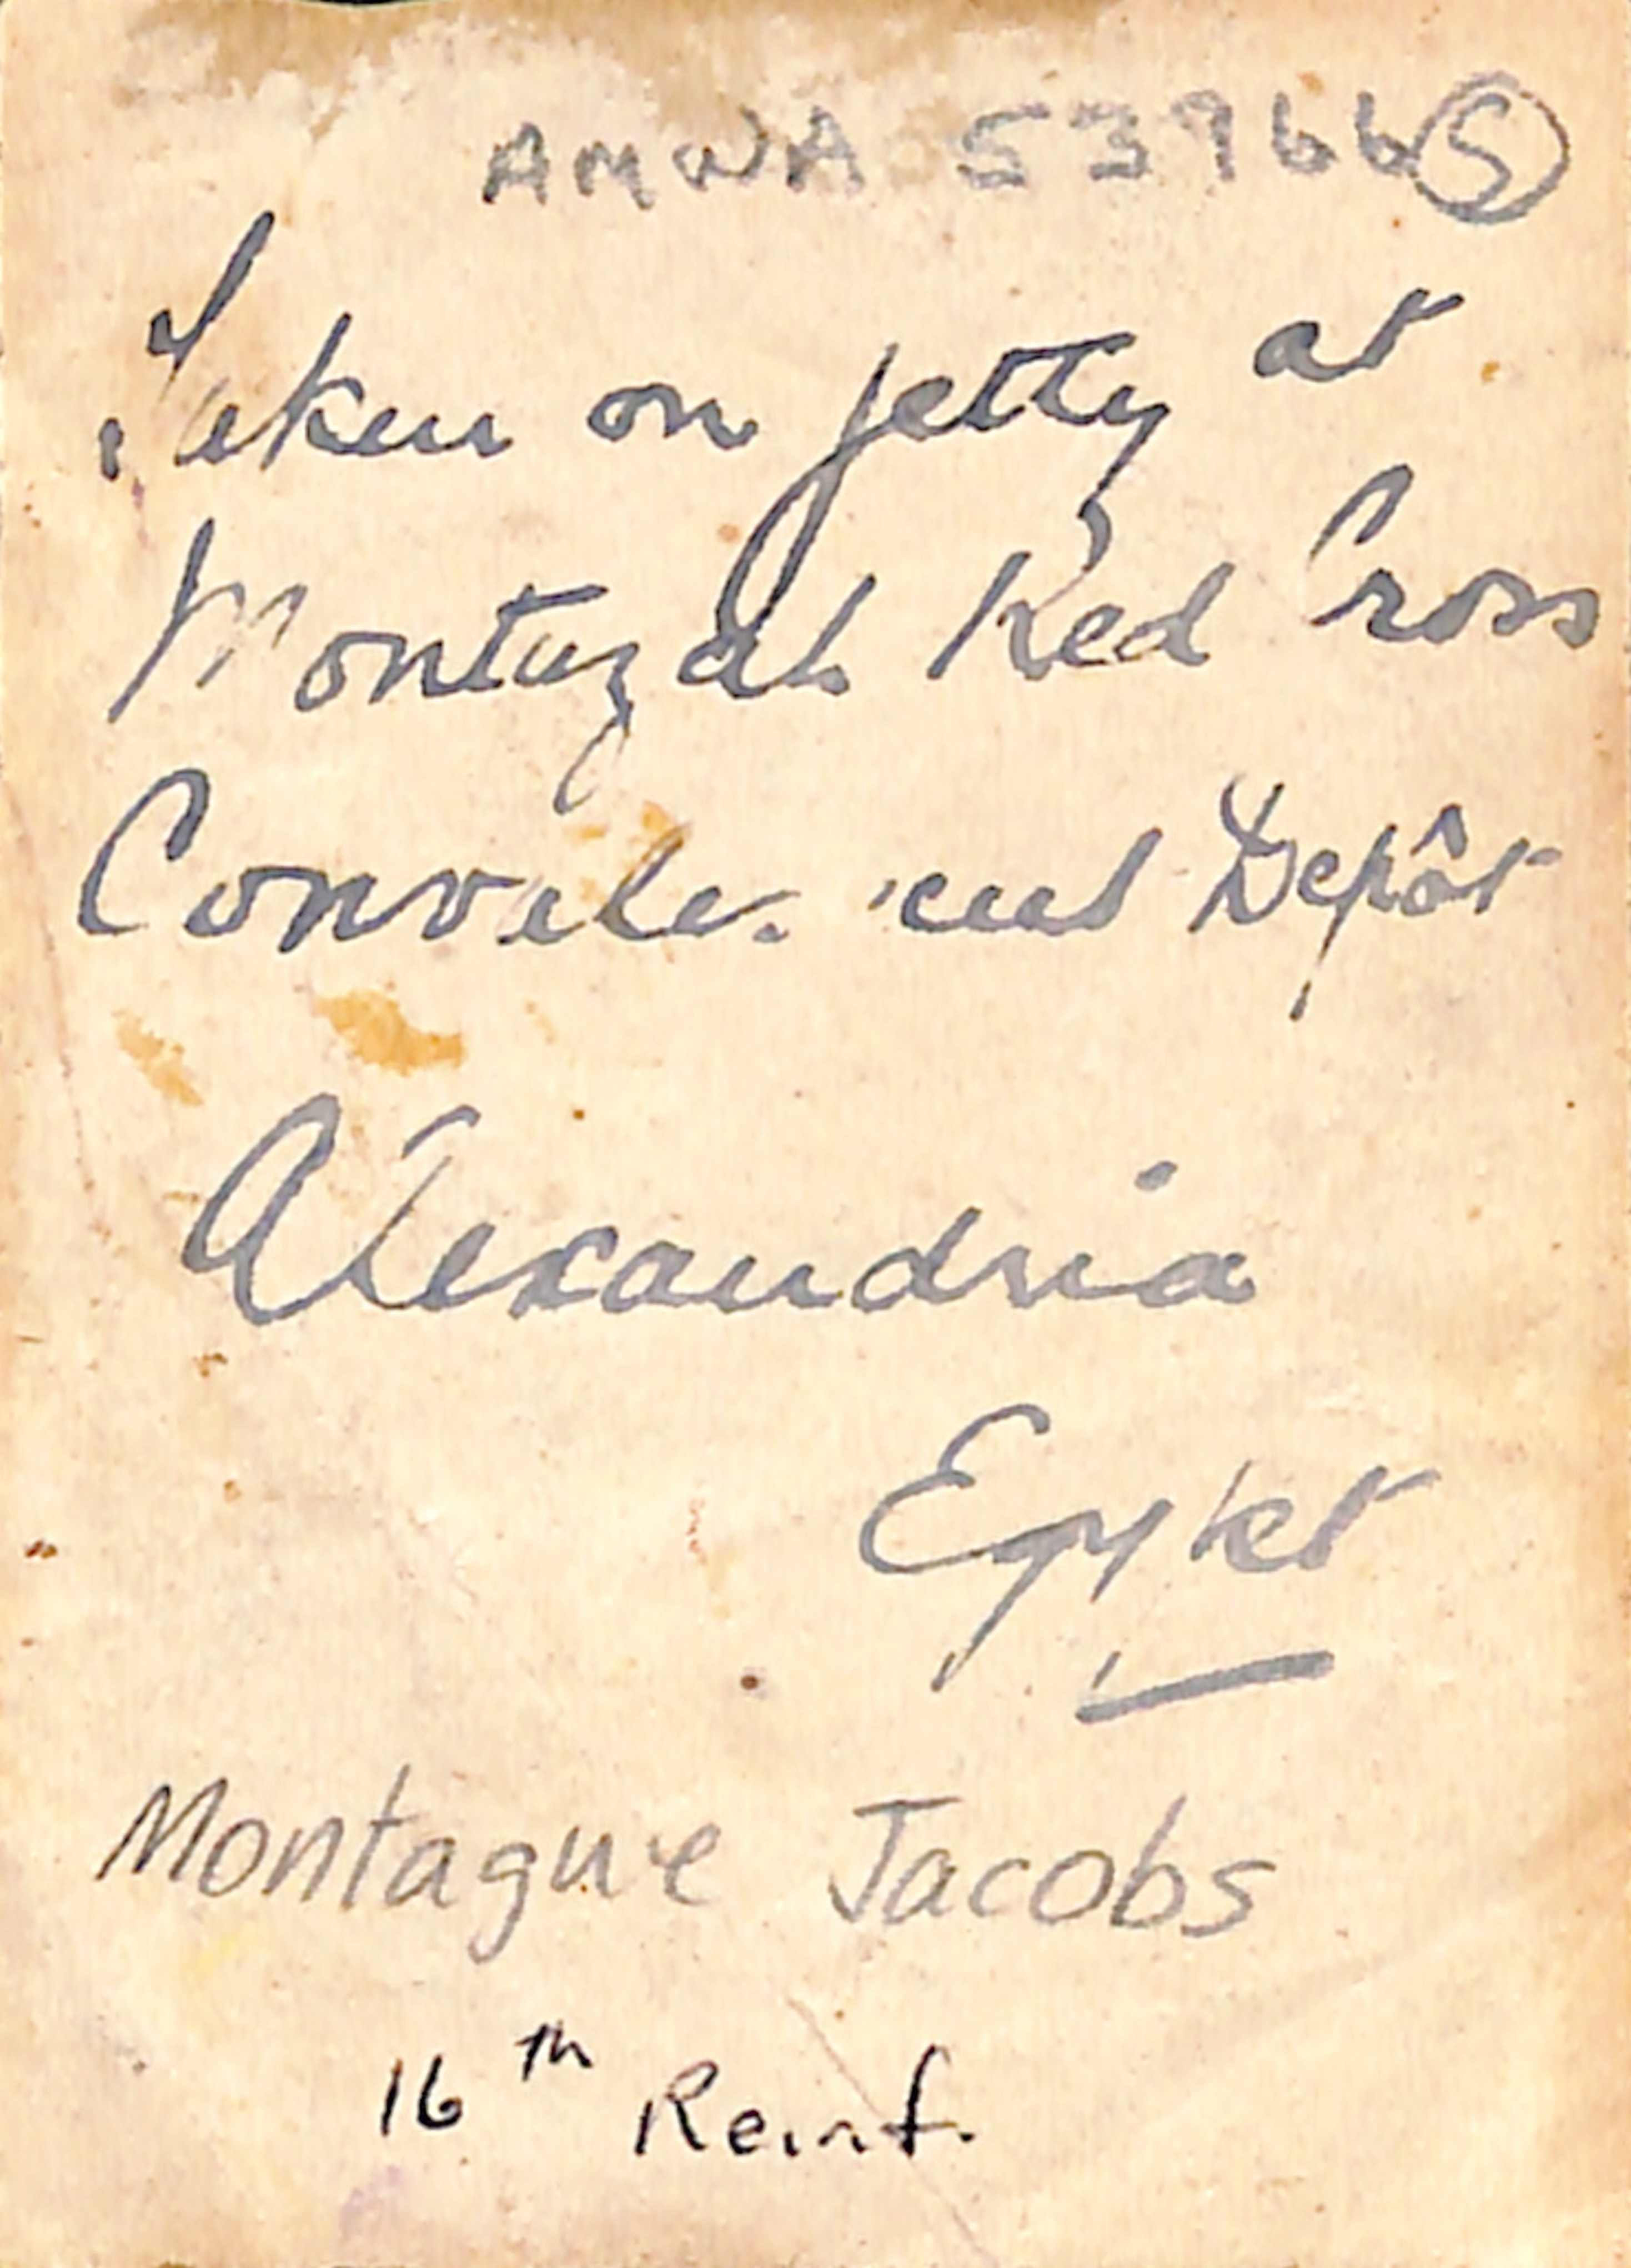 AMWA 53966 S
Taken on jetty at
Montazah Red Cross
Convalescent Depôt
Alexandria
Egypt
Montague Jacobs
16th Reinf.